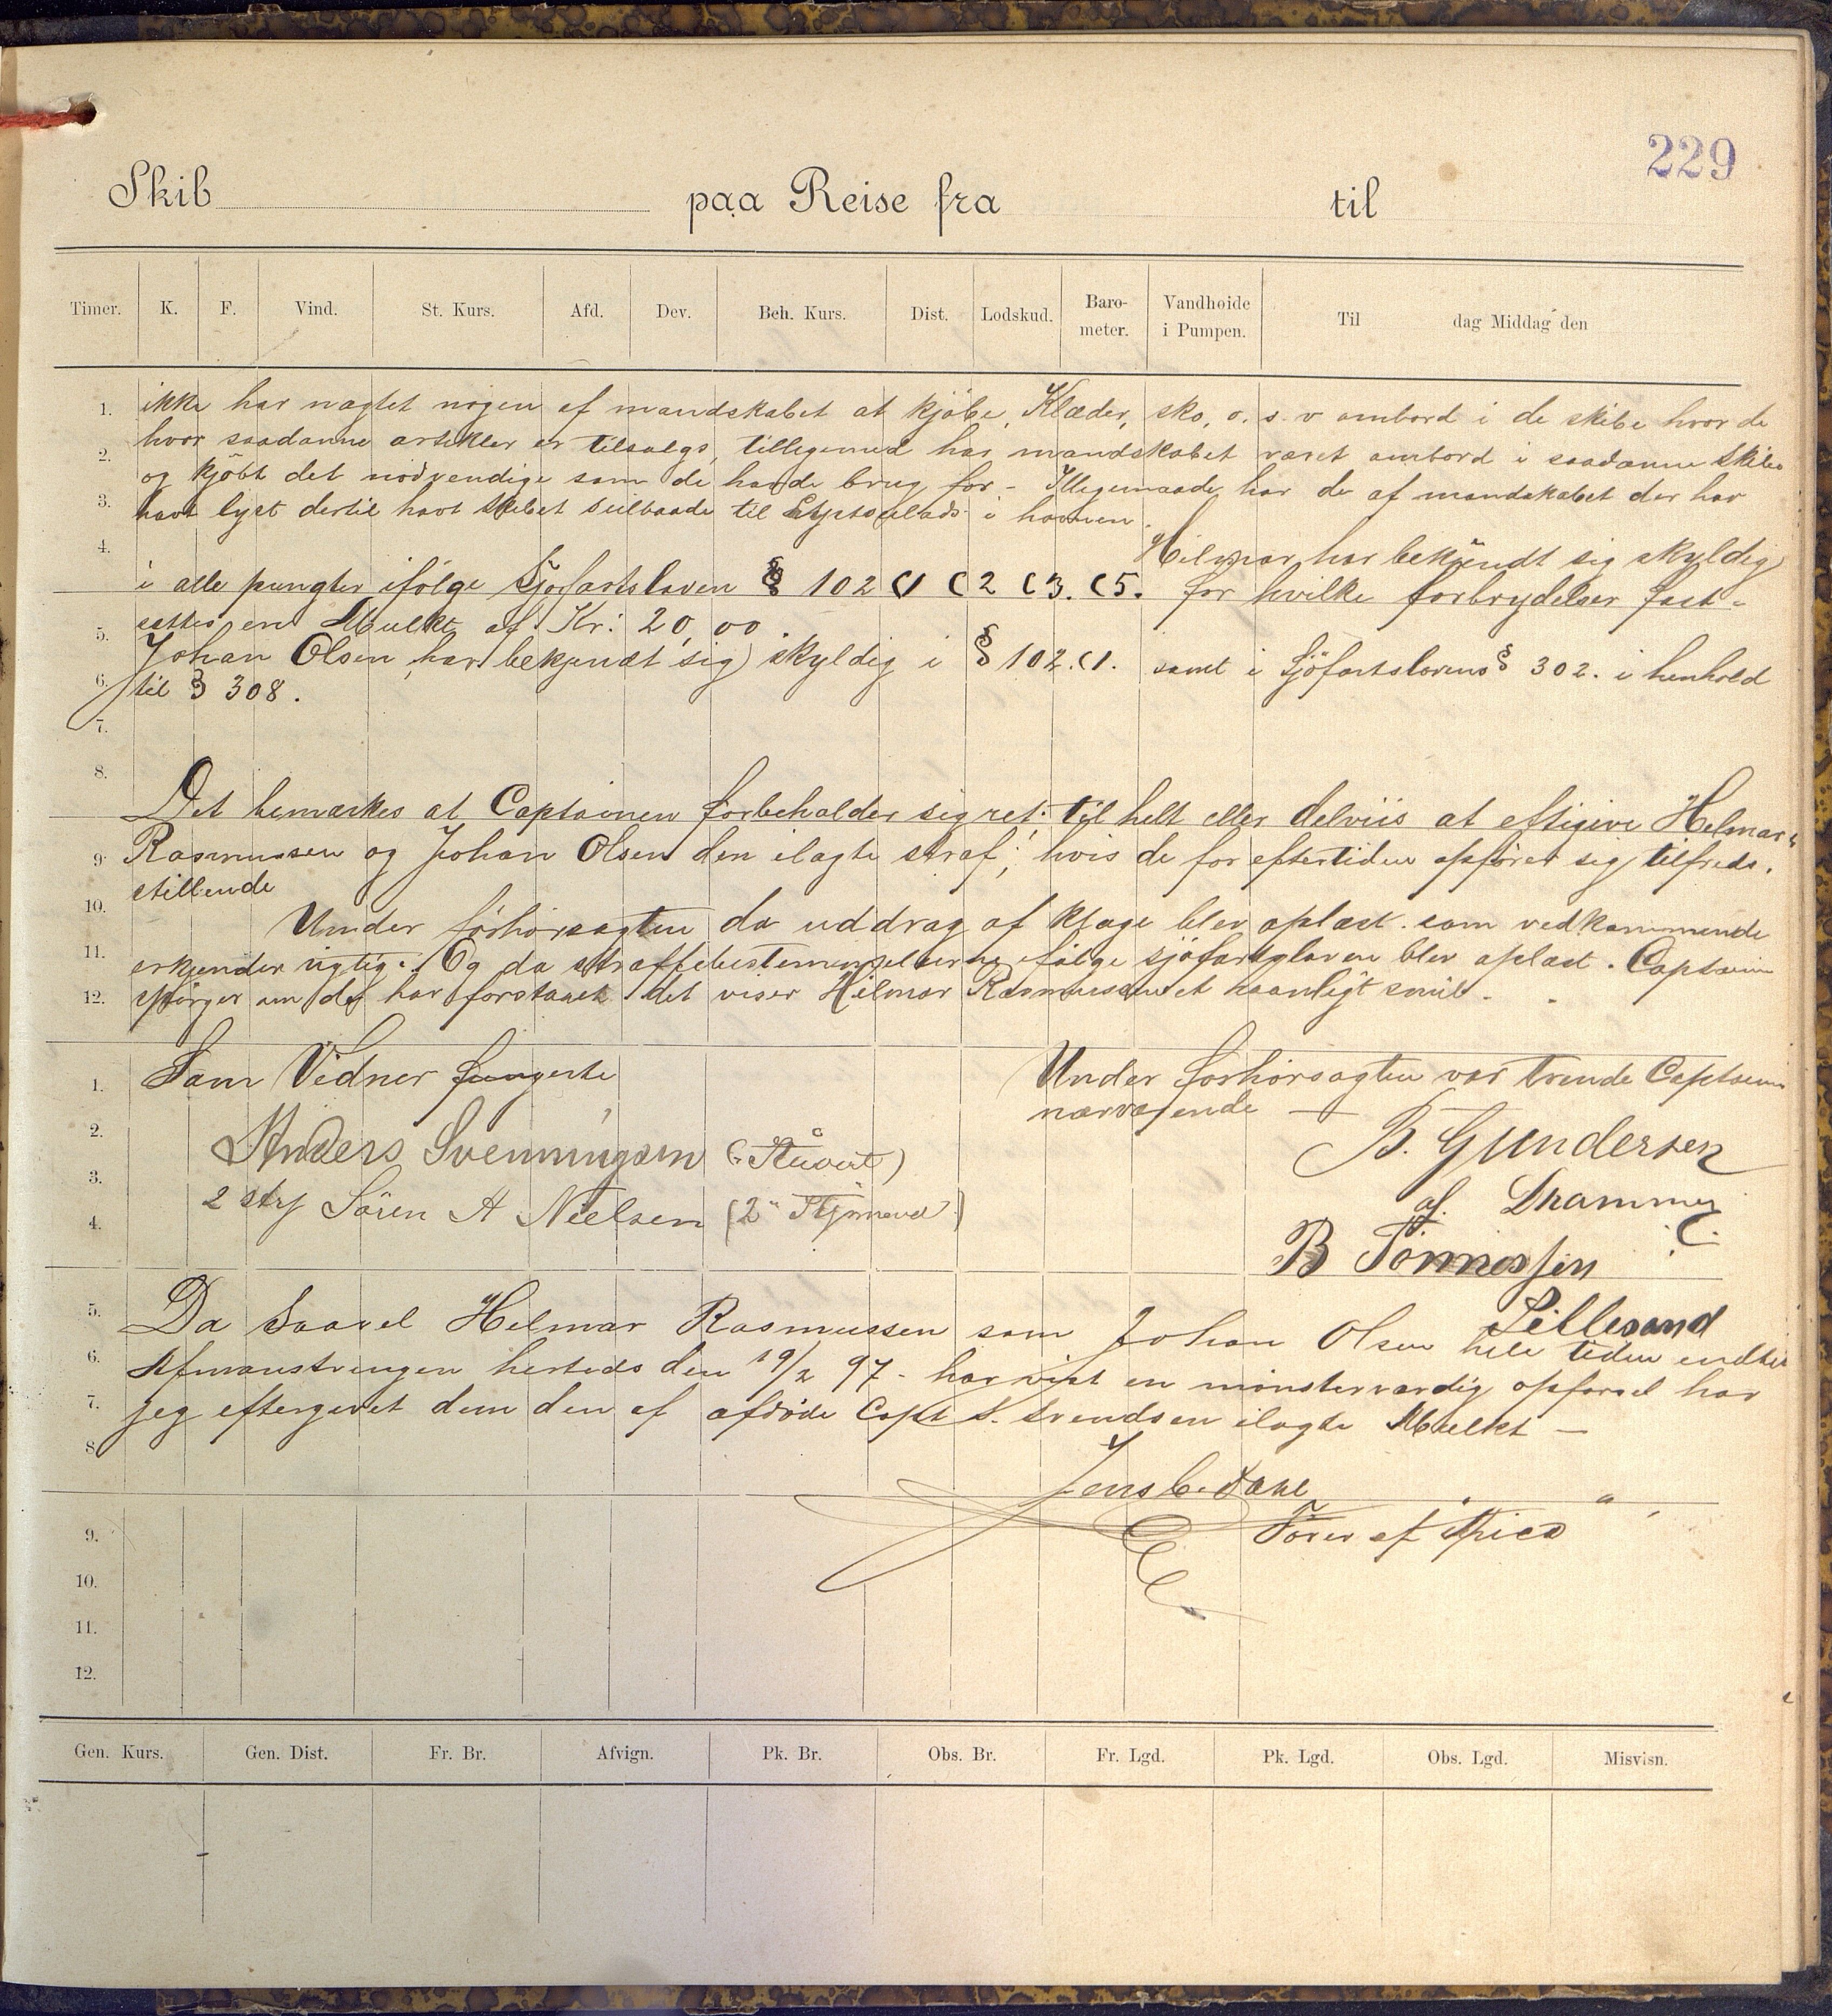 229
Skib paa Reise fra til
Timer. K. F. Vind. St. Kurs. Afd. Dev. Beh. Kurs. Dist. Lodskud. Baro-meter. Vandhoide i Pumpen. Til dag Middag den
1. ikke har nagtet nogen af mandskabet at kjöbe, Klæder, sko, o. s. v ombord i de skibe hvor de
2. hvor saadanne artikler er tilsalgs, tillegemed har mandskabet været ombord i saadanne Skibe
og kjöbt det nödvendige som de havde brug for - Illigemaade har de af mandskabet der har
3. havt lyst dertil havt Skibet seilbaade til i havnen.
4. Hilmar har bekjendt sig skyldig
i alle pungter ifölge Sjöfartsloven § 102 (1 (2 (3. (5. for hvilke forbrydelser fast-
5. sattes en Mulkt af Kr: 20,00.
Johan Olsen har bekjendt sig skyldig i § 102.(1. samt i Sjöfartslovens § 302. i henhold
6. til § 308.
7.
8.
Det bemærkes at Captainen forbeholder sig ret til helt eller delviis at eftigive Helmar
9. Rasmussen og Johan Olsen den ilagte straf; hvis de for eftertiden opförer sig tilfreds.
stillende
10. Under förhörsagten da uddrag af klage blev oplæst. som vedkommende
11. erkjender rigtig. Og da straffebestemmelserne ifölge sjöfartsloven blev oplæst. Captain
12. spörger om de har forstaaet det viser Hilmar Rasmussen et haanligt smil.
1. Som Vidner fungerte Under forhörsagten var trende Captain
nærværende —
2. Anders Svenningsen (Stuvert) B. Gundersen
3. 2 Sören A Nielsen (2" Stÿrmand) af. Drammen
4. B Tönnessen
5. Lillesand
Da Saavel Helmar Rasmussen som Johan Olsen hele tiden indtil
6. Afmønstringen hersteds den 19/2 97 - har vist en mönsterværdig opförsel har
7. jeg eftergivet dem den af afdöde Capt S. Svendsen ilagte Mulkt —
8.
Jens C. Dahl
9. Förer af
10.
11.
12.
Gen. Kurs. Gen. Dist. Fr. Br. Afvign. Pk. Br. Obs. Br. Fr. Lgd. Pk. Lgd. Obs. Lgd. Misvisn.